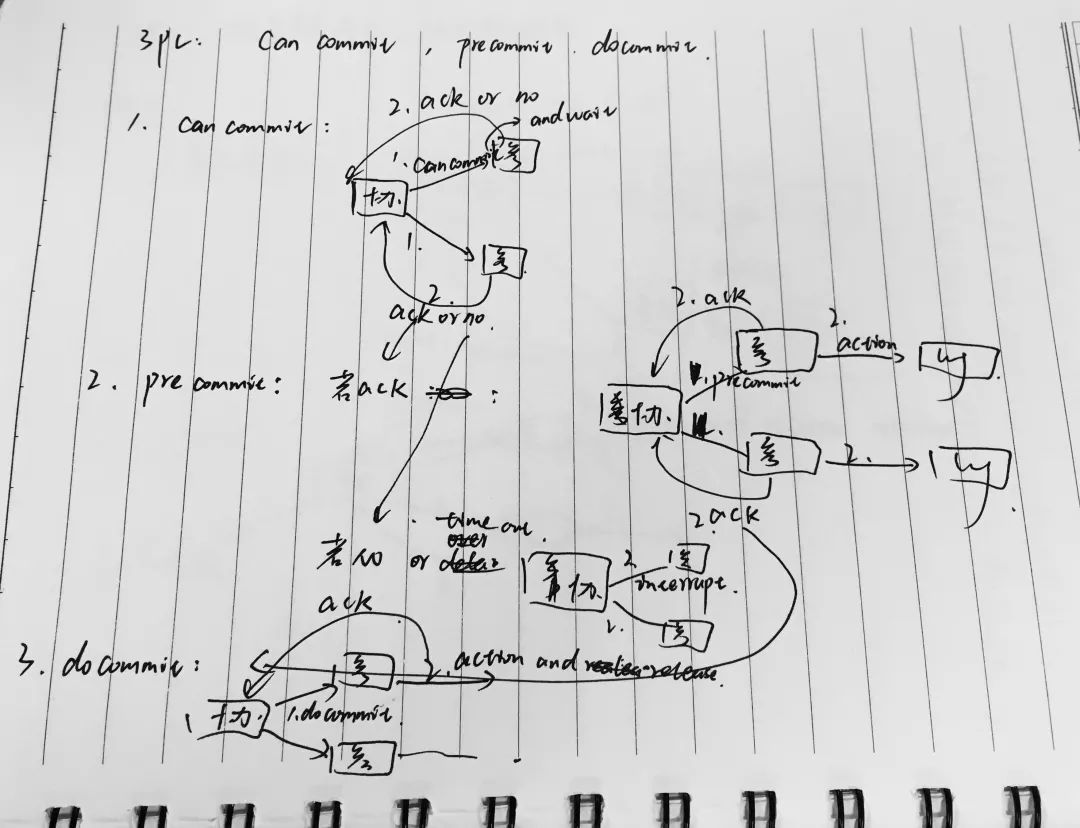 3pc: Can commit, precommit. docommit.
2. ack or no
and wait
1. can commit:
1. cancommit
参
协.
1.
参
2.
ack or no.
2. ack
2.
action
参
log
2. precommit:
若ack
:
1. precommit
协.
1.
参
2.
log
2 ack
time out.
若no or
协.
2.
参
interrupt.
2.
参
ack
3. docommit:
参
2. action and release.
协.
1. docommit
参